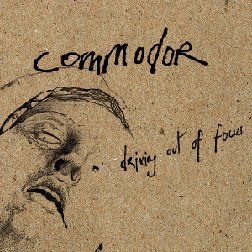 commodor
driving out of focus